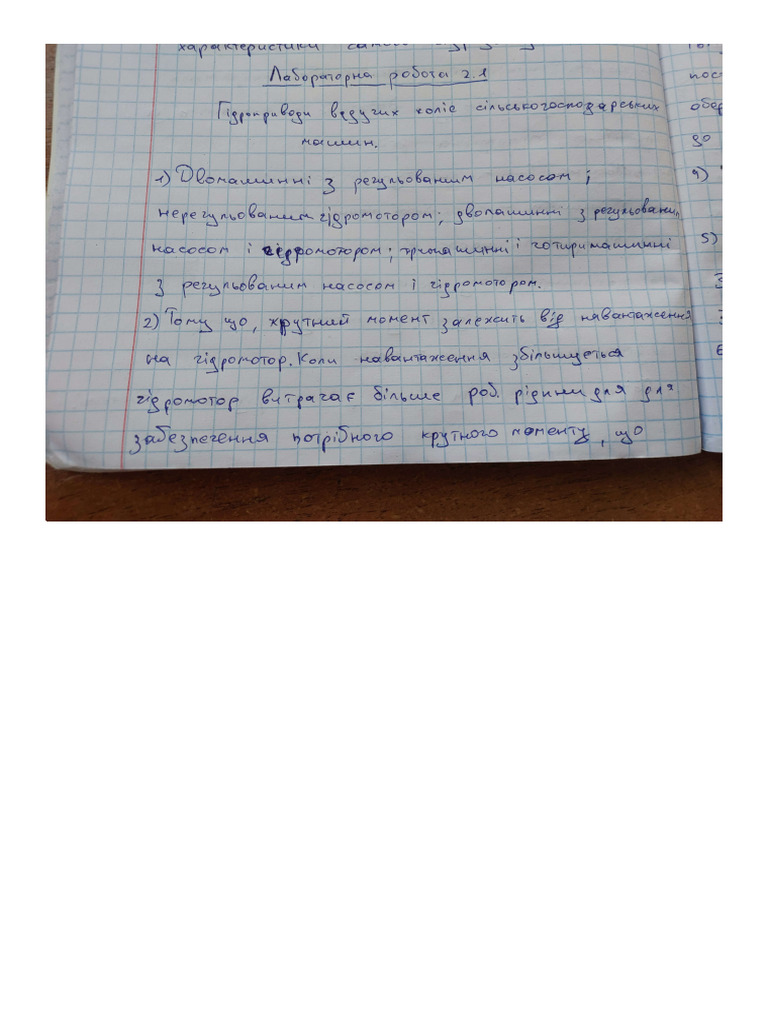 характеристики
Лабораторна робота 2.1
Гідроприводи ведучих коліс сільськогосподарських
машин.
1) Двомашинні з регульованим насосом і
нерегульованим гідромотором; двомашинні з регульованим
насосом і гідромотором; трьомашинні і чотиримашинні
з регульованим насосом і гідромотором.
2) Тому що, крутний момент залежить від навантаження
на гідромотор. Коли навантаження збільшується
гідромотор витрачає більше роб. рідини для для
забезпечення потрібного крутного моменту, що
пост
обер
до
9)
5)